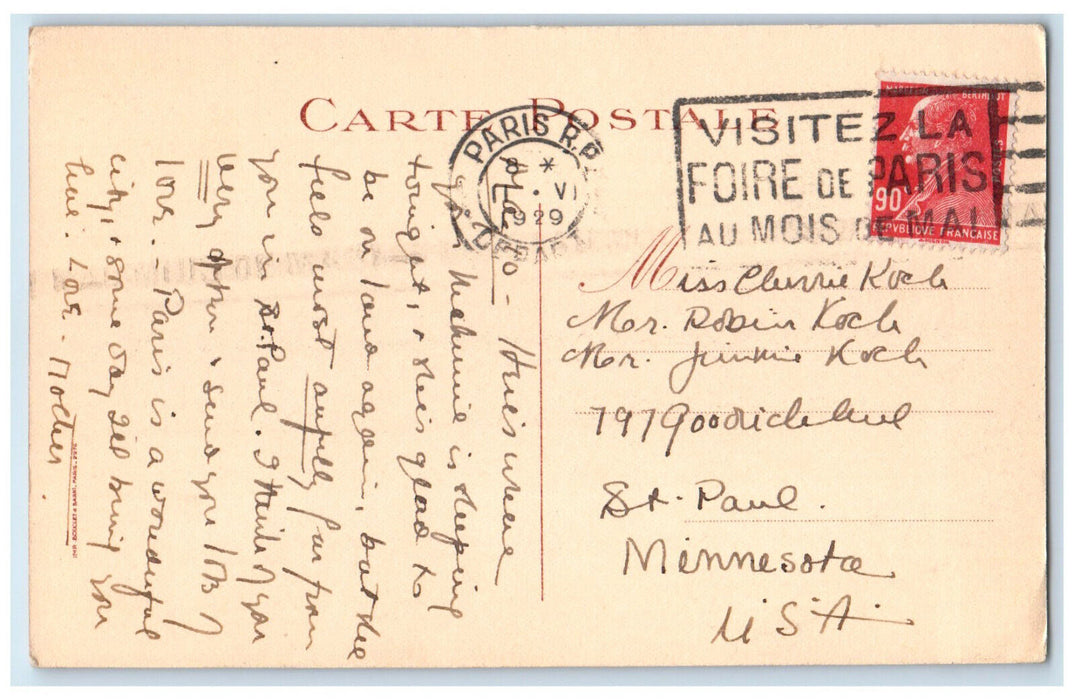 CARTE POSTALE
PARIS R.P.
VI
1929
VISITEZ LA
FOIRE DE PARIS
AU MOIS DE MAI
BERTHELOT
90
POSTES
REPVBLIQUE FRANÇAISE
Miss Cherrie Koch
Mr. Robin Koch
Mr. Jimmie Koch
797 Goodrich Ave
St. Paul.
Minnesota
U S A.
This is where
is sleeping
tonight, + she is glad to
be on land again, but she
feels most awfully far from
you in St. Paul. I think of you
very often + send you lots of
love. - Paris is a wonderful
city, + some day I'll bring you
here. Love - Mother
IMP. BOUQUET & BAUMI, PARIS.